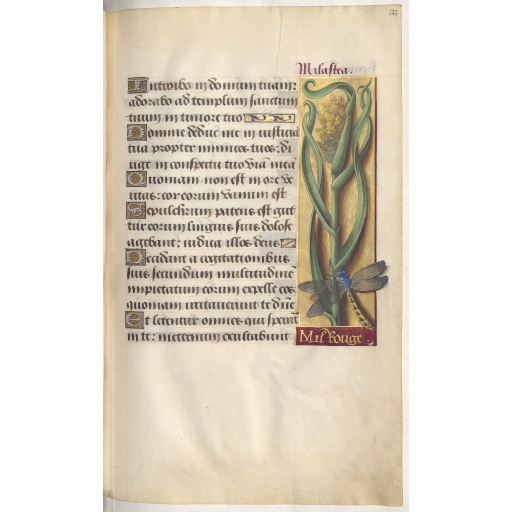 122
Milastea.
Introibo in domum tuam:
adorabo ad templum sanctum
tuum in timore tuo
Domine deduc me in iusticia
tua propter inimicos meos: di
rige in conspectu tuo viā meā
Quoniam non est in ore ve
ritas: cor eorum vanum est
Sepulchrum patens est gut
tur eorum linguis suis dolose
agebant: iudica illos deus
Decidant a cogitationibus
suis secundum multitudinē
impietatum eorum expelle eos
quoniam irritaverunt te dn̄e
Et letentur omnes qui sperāt
in te: ineternum exultabunt
Mil Rouge.